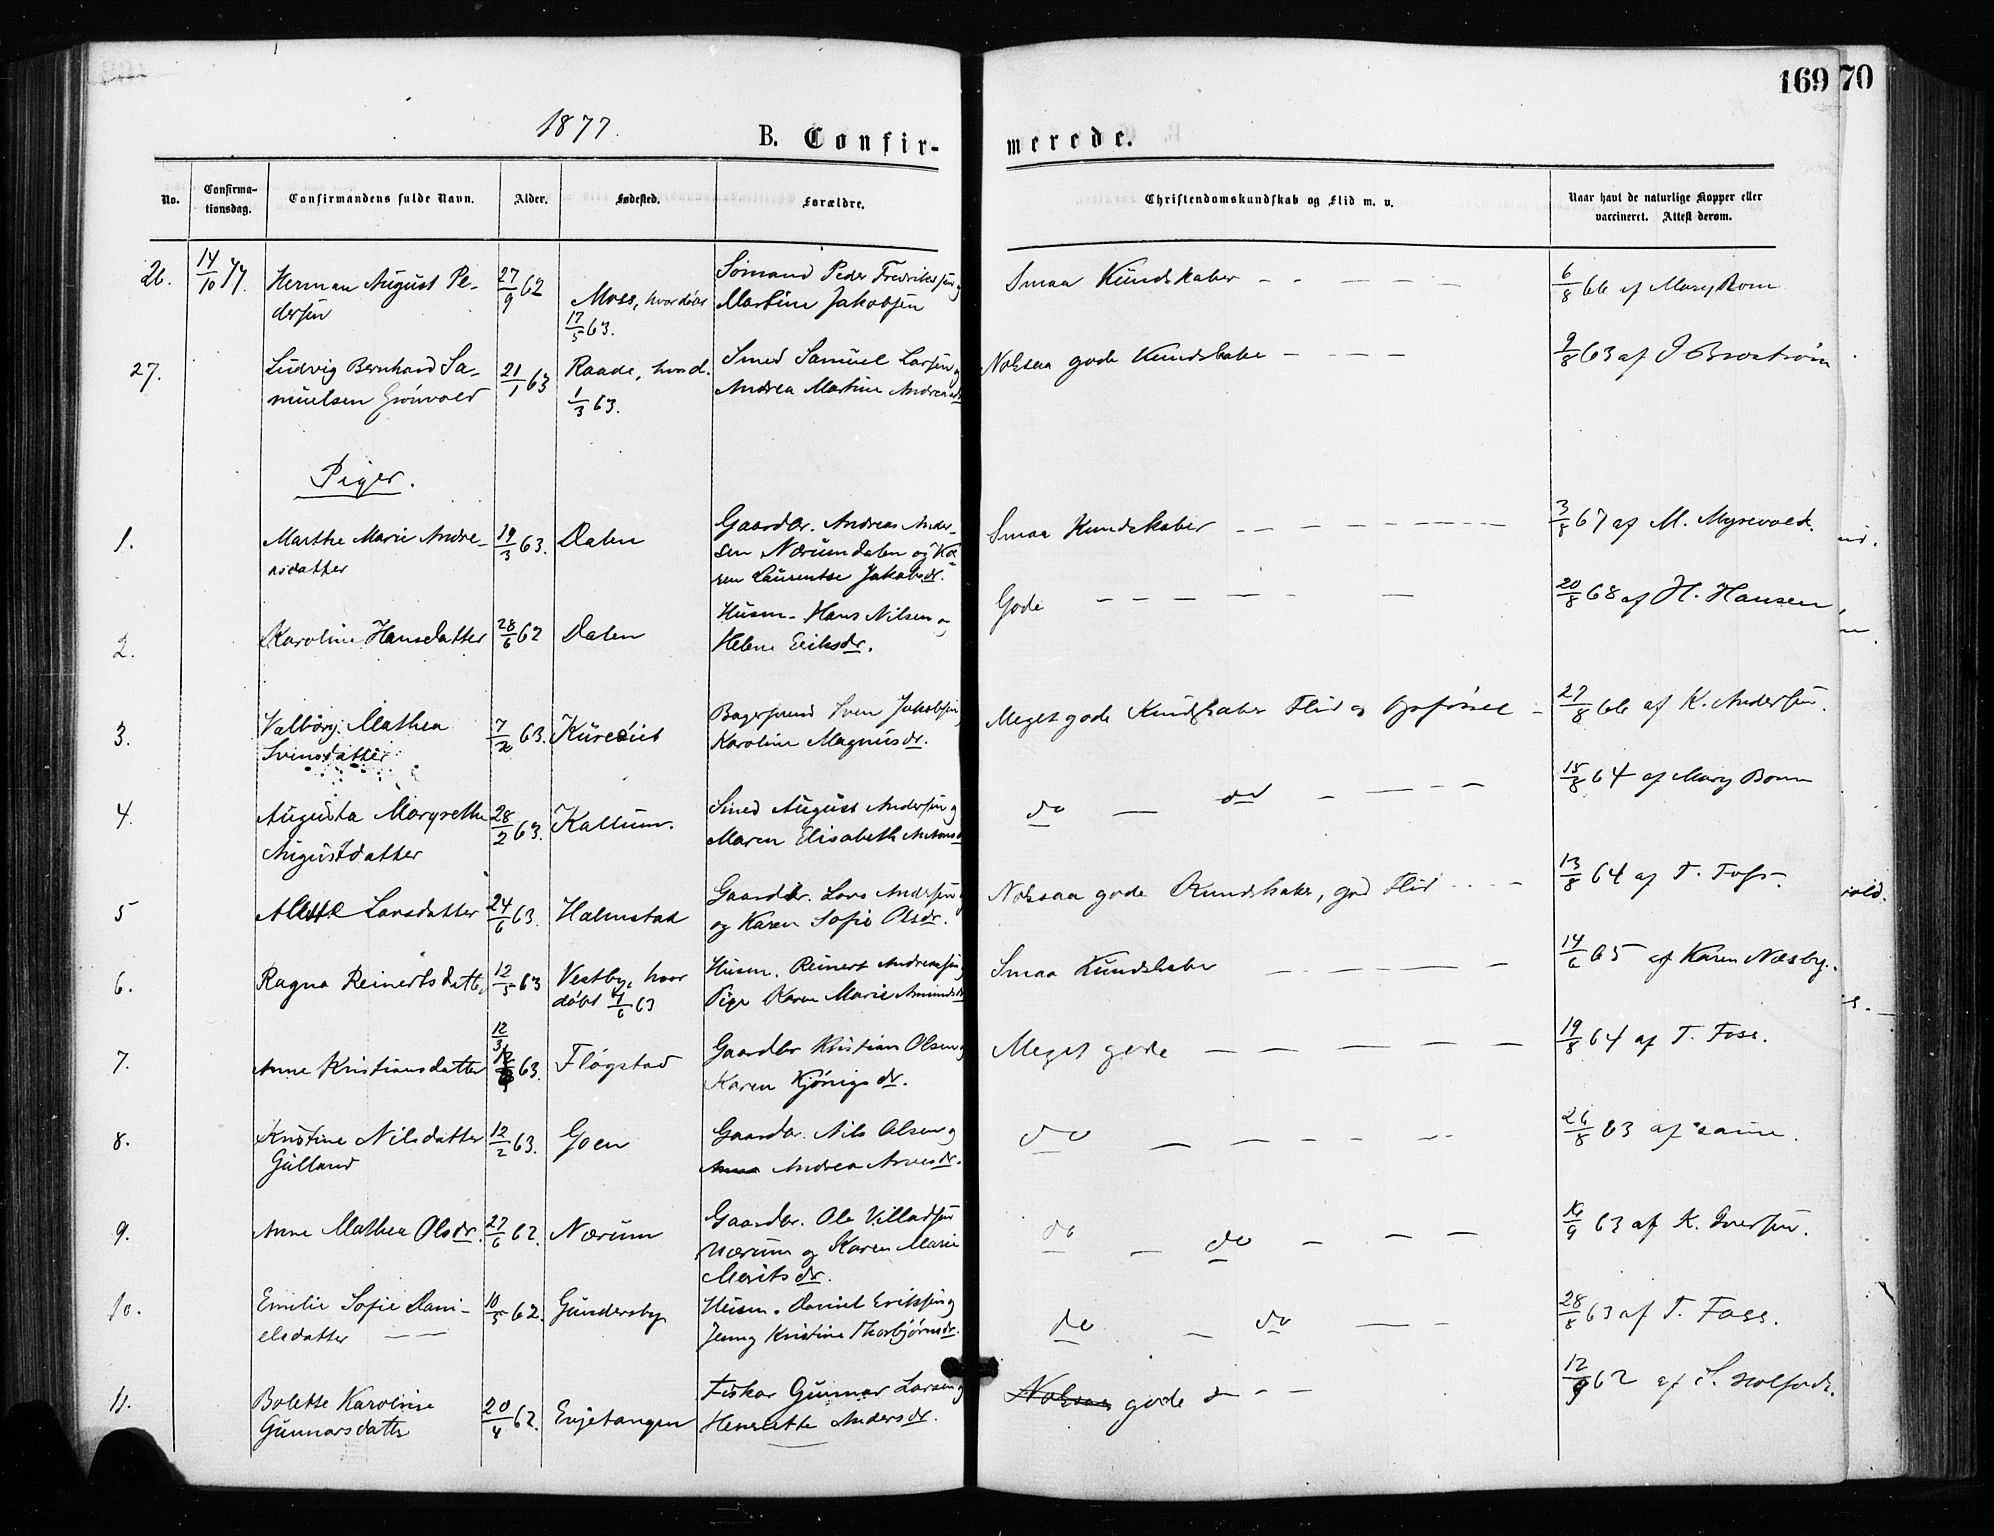 169 70
1877.
B. Confir-
merede.
No.
Confirma-
tionsdag.
Confirmandens fulde Navn.
Alder.
Fødested.
Forældre.
Christendomskundskab og Flid m. v.
Naar havt de naturlige Kopper eller
vaccineret. Attest derom.
26. 14/10 77. Herman August Pe-
dersen
27/9 62
Moss, hvor døbt
17/5 63.
Sømand Peder Fredriksen og
Martine Jakobsen
Smaa Kundskaber - - - - -
6/8 66 af Mary Bom
27. Ludvig Bernhard Sa-
muelsen Grønvold
21/1 63
Raade, hvor d.
1/3 63.
Smed Samuel Larsen og
Andrea Martine Andreasdr
Noksaa gode Kundskaber - - - -
9/8 63 af J Broström
Piger.
1. Marthe Marie Andre-
asdatter
19/3 63.
Dalen
Gaardbr. Andreas Ander-
sen Nærumdalen og Ka-
ren Laurentse Jakobsdr.
Smaa Kundskaber - - - - - - - -
3/8 67 af M. Mysevold.
2. Karoline Hansdatter
28/6 62
Dalen
Husm. Hans Nilsen og
Helene Eriksdr.
Gode - - - - - -
20/8 68 af H. Hansen
3. Valborg Mathea
Svensdatter
7/2 63.
Kureviet
Bagersvend Sven Jakobsen
Karoline Magnusdr.
Meget gode Kundskaber Flid og Opførsel -
27/8 66 af K. Andersen.
4. Augusta Margrethe
Augustdatter
28/2 63.
Kallum.
Smed August Andersen og
Maren Elisabeth Antonsdr
do - do - - - -
15/8 64 af Mary Bom
5 Alette Larsdatter
24/6 63.
Halmstad
Gaardbr. Lars Andersen
og Karen Sofie Olsdr.
Noksaa gode Kundskaber, god Flid - - - -
13/8 64 af T. Foss.
6. Ragna Reinertsdatter
12/5 63
Vestby, hvor
døbt 7/6 63
Husm. Reinert Andreassen og
Pige Karen Marie Amundsdr
Smaa Kundskaber - - - - -
14/6 65 af Karen Næsby.
7. Anne Kristiansdatter
12/3 63.
Fløgstad
Gaardbr Kristian Olsen og
Karen Kjönigsdr.
Meget gode - - - - - -
19/8 64 af T. Foss.
8. Kristine Nilsdatter
Gulland
12/2 63.
Goen
Gaardbr. Nils Olsen og
Anne Andrea Arnesdr.
do - - - - -
26/8 63 af samme.
9. Anne Mathea Olsdr.
27/6 62.
Nærum
Gaardbr. Ole Villadsen
Nærum og Karen Marie
Moritsdr.
do - do - - -
16/9 63 af K. Iversen.
10. Emilie Sofie Dani-
elsdatter
10/5 62.
Gundersby
Husm. Daniel Eriksen og
Jenny Kristine Thorbjørnsdr.
do - do - -
28/8 63 af T. Foss.
11. Bolette Karoline
Gunnarsdatter
20/4 62.
Evjetangen
Fisker Gunnar Larsen og
Henriette Andersdr.
Noksaa gode - - -
12/9 62 af